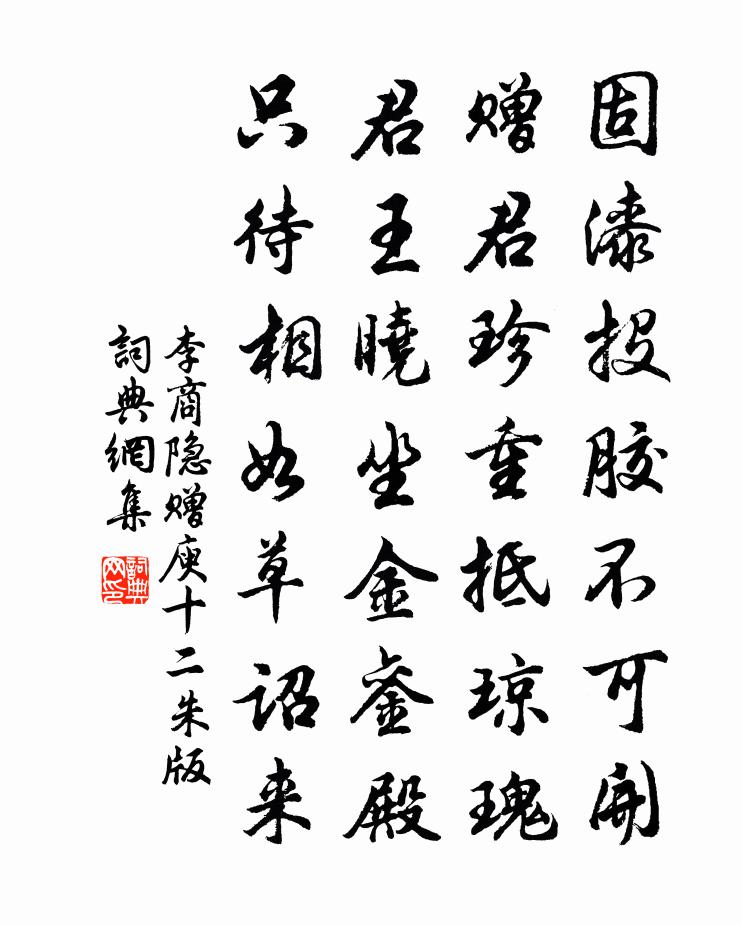 固漆投胶不可開
赠君珍重抵琼瑰
君王曉坐金銮殿
只待相如草詔来
李商隐赠庾十二朱版
詞典網集
詞典网印